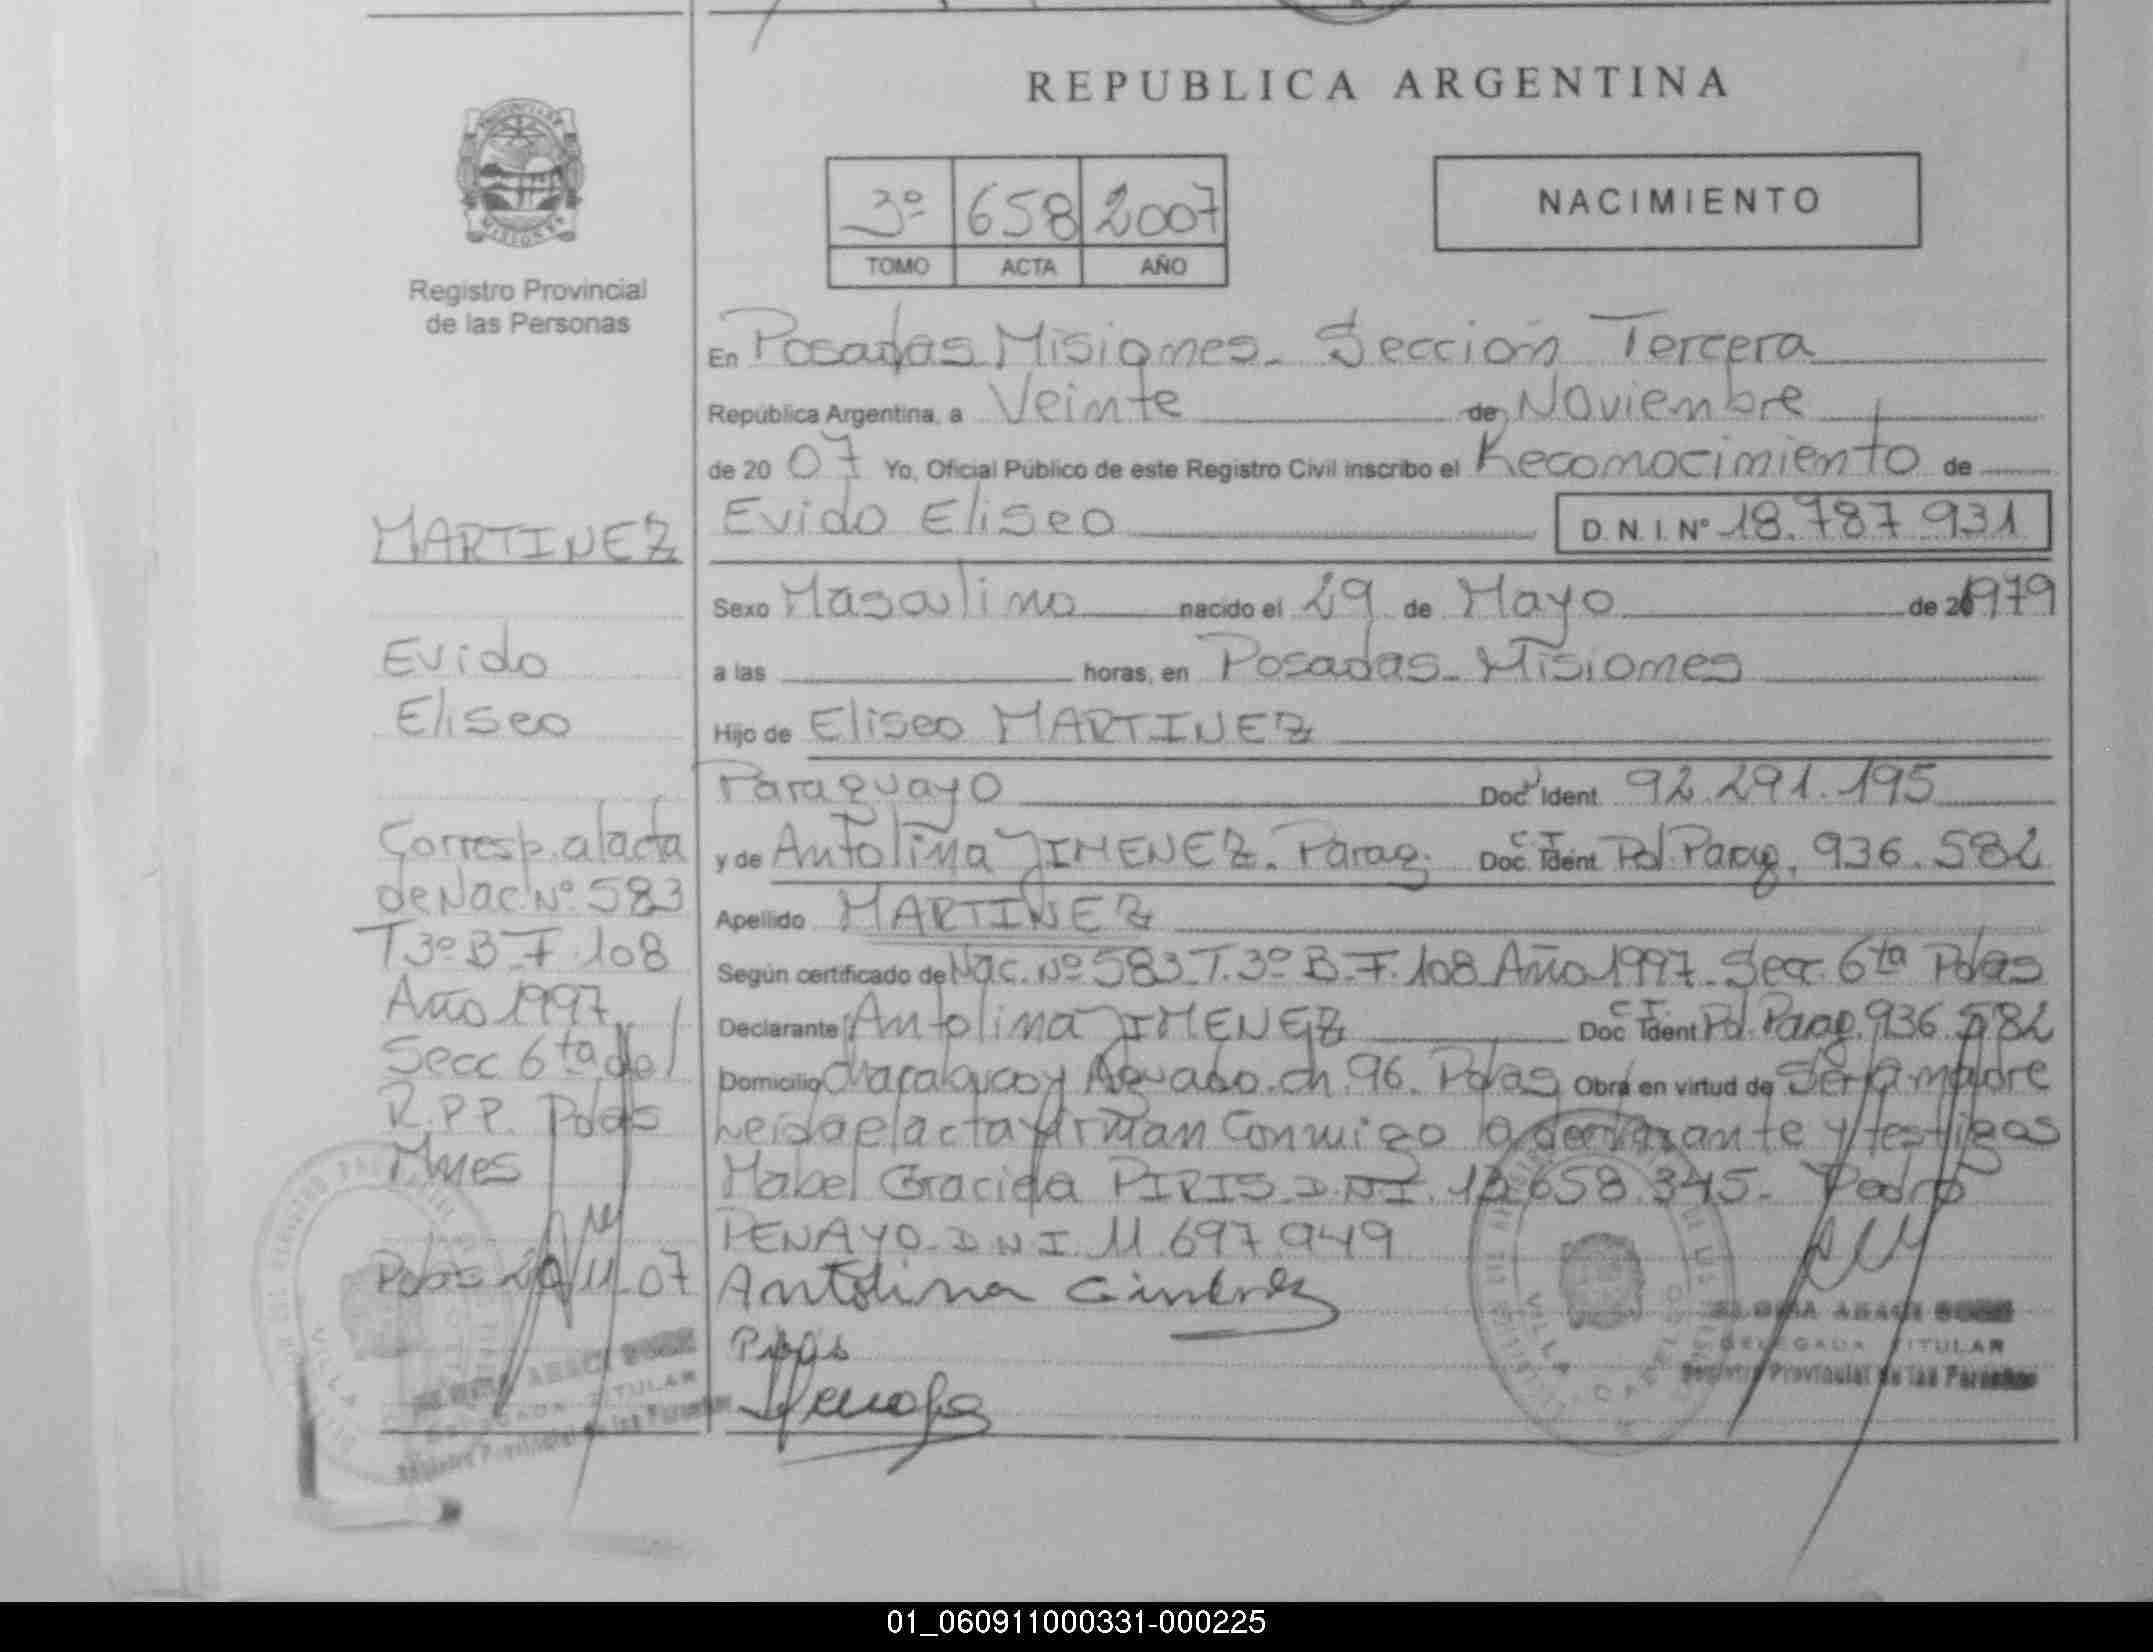 REPUBLICA ARGENTINA
Registro Provincial
de las Personas
3º 658 2007
TOMO ACTA AÑO
NACIMIENTO
En Posadas Misiones. Sección Tercera
República Argentina, a Veinte de Noviembre
de 20 07 Yo, Oficial Público de este Registro Civil inscribo el Reconocimiento de
Evido Eliseo D.N.I. Nº 18.787.931
Sexo Masculino nacido el 29 de Mayo de 1979
a las horas, en Posadas. Misiones
Hijo de Eliseo MARTINEZ
Paraguayo Doc. Ident. 92.291.195
y de Antolina JIMENEZ. Parag. C.I. Doc. Ident. Pol. Parag. 936.582
Apellido MARTINEZ
Según certificado de Nac. Nº 583 T. 3º B-F. 108 Año 1997. Secc. 6ta Pdas
Declarante Antolina JIMENEZ C.I. Doc. Ident Pol. Parag. 936.582
Domicilio Chacabuco y Aguado. Ch. 96. Pdas Obra en virtud de Ser la madre
Leida el acta firman Conmigo la declarante y testigos
Mabel Graciela PIRIS D.N.I. 658.345. Pedro
PENAYO. D.N.I. 11.697.949
Antolina
MARTINEZ
Evido
Eliseo
Corresp. al acta
de Nac. Nº 583
T.3º B-F. 108
Año 1997
Secc 6ta del
R.P.P. Pdas
Mnes
Pdas 20/11-07
DELEGADA TITULAR
Registro Provincial de las Personas
DELEGADA TITULAR
Registro Provincial de las Personas
01_060911000331-000225